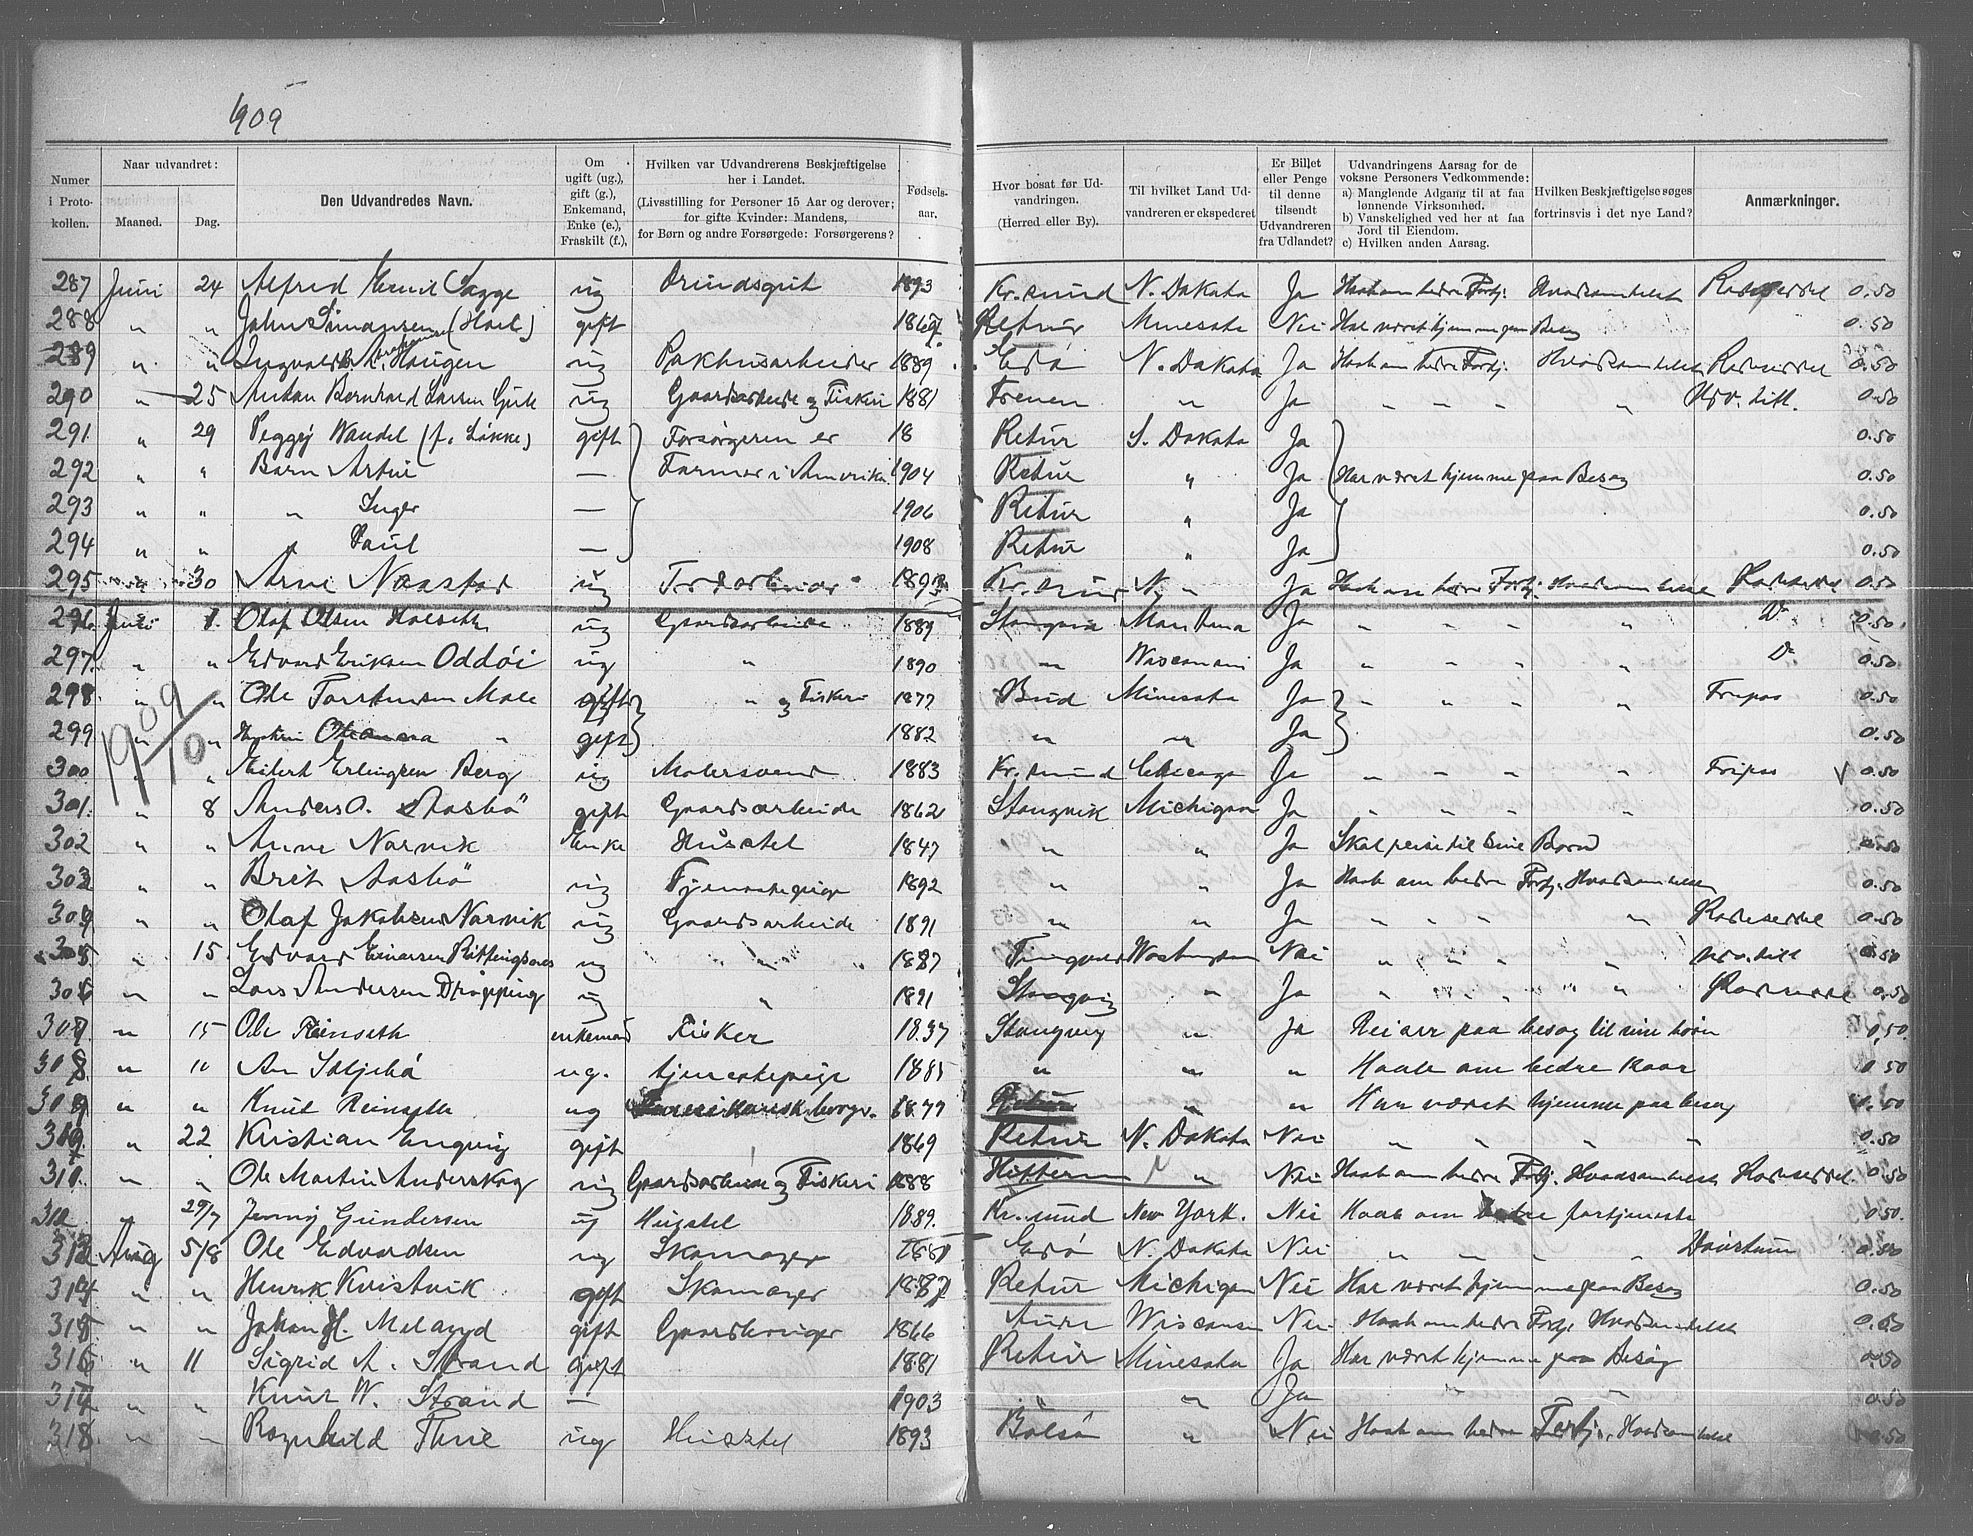 1909
Numer i Protokollen. | Naar udvandret: Maaned. | Dag. | Den Udvandredes Navn. | Om ugift (ug.), gift (g.), Enkemand, Enke (e.), Fraskilt (f.), | Hvilken var Udvandrerens Beskjæftigelse her i Landet. (Livsstilling for Personer 15 Aar og derover; for gifte Kvinder: Mandens, for Børn og andre Forsørgede: Forsørgerens? | Fødsels-aar. | Hvor bosat før Udvandringen. (Herred eller By). | Til hvilket Land Udvandreren er ekspederet | Er Billet eller Penge til denne tilsendt Udvandreren fra Udlandet? | Udvandringens Aarsag for de voksne Personers Vedkommende: a) Manglende Adgang til at faa lønnende Virksomhed. b) Vanskelighed ved her at faa Jord til Eiendom. c) Hvilken anden Aarsag. | Hvilken Beskjæftigelse søges fortrinsvis i det nye Land? | Anmærkninger.
287 Juni 24 Alfred Emil Sagge ug 1893 Kr.sund N. Dakota Ja Haab om bedre Fortj. Hvadsomhelst 0.50
288 " " John Simonsen (Hoel) gift 1867 Retur Minesota Nei Har været hjemme paa Besøg 0.50
289 " " Ingvald A. Haugen ug Pakhusarbeider 1889 Edø N. Dakota Ja Haab om bedre Fortj. Hvadsomhelst 0.50
290 " 25 Anton Bernhard Larsen ug Gaardsarbeide og Fiskeri 1881 Frenen " Ja " " " " 0.50
291 " 29 Peggy Wandel (f. Løkke) gift Forsørgeren er 18 Retur S. Dakota Ja 0.50
292 " " Barn Artur — Farmer i Amerika 1904 Retur " Ja Har været hjemme paa Besøg 0.50
293 " " " Inger — 1906 Retur " Ja 0.50
294 " " " Paul — 1908 Retur " Ja 0.50
295 " 30 Arne Naastad ug Jordarbeider 1893 Kr.sund N. " Ja Haab om bedre Fortj. Hvadsomhelst 0.50
296 Juli 1 Olaf Olsen Halseth ug Gaardsarbeide 1889 Stangvik Montana Ja " " " " Do 0.50
297 " " Edvard Eriksen Oddøi ug " 1890 " Wisconsin Ja " " " " Do 0.50
298 " " Ole Torstensen Male gift " og Fiskeri 1877 Bud Minesota Ja " " " " Fripas 0.50
299 " " Hustru Oleanna " gift 1882 " " Ja 0.50
1909/10
300 " " Eilert Erlingsen Berg ug Malersvend 1883 Kr.sund Chicago Ja " " " " Fripas V 0.50
301 " 8 Anders O. Aasbø gift Gaardsarbeide 1862 Stangvik Michigan Ja " " " " 0.50
302 " " Anne Narvik Enke Husstel 1847 " " Ja Skal reise til sine Børn 0.50
303 " " Brit Aasbø ug Tjenestepige 1892 " " Ja Haab om bedre Fortj. Hvadsomhelst 0.50
304 " " Olaf Jakobsen Narvik ug Gaardsarbeide 1891 " " Ja " " " " 0.50
305 " 15 Edvard Einarsen ug " " " 1887 Tingvold Washington Nei " " " " 0.50
306 " " Lars Andersen Drøpping ug " 1891 Stangvig " Ja " " " " " 0.50
307 " 15 Ole Reinseth enkemand Fisker 1837 Stangvig " Ja Reiser paa besøg til sine børn 0,50
308 " " An Satjebø ug. tjenestepige 1885 " " " Haab om bedre kaar 0 50
309 " " Knut Reinseth ug Amerikansk borger. 1877 Retur " " Har været hjemme paa besøg 0.50
310 " 22 Kristian Enquig gift 1869 Retur N. Dakota Nei " " " " 0.50
311 " " Ole Martin Anderskog ug Gaardsarbeide og Fiskeri 1888 Hitteren " Nei Haab om bedre Fortj. Hvadsomhelst 0.50
312 " 29/7 Jenny Gundersen ug Husstel 1889. Kr.sund New York. Nei Haab om bedre fortjeneste 0.50.
313 Aug 5/8 Ole Edvardsen ug Skomager Edø N. Dakota Nei " " " " 0.50
314 " " Henrik Kvistvik gift Skomager 1887 Retur Michigan Nei Har været hjemme paa Besøg 0.50
315 " " Johan H. Melagyd gift Gaardbruger 1866 Aure Wisconsin Nei Haab om bedre Fortj. Hvadsomhelst 0.50
316 " 11 Sigrid A. Strand gift 1881 Retur Minesota Ja Har været hjemme paa Besøg 0.50
317 " " Knut W. Strand — 1903 " " Ja " " 0.50
318 " " Ragnhild Thue ug Husstel 1893 Bolsø " Nei Haab om bedre Fortj. Hvadsomhelst 0.50